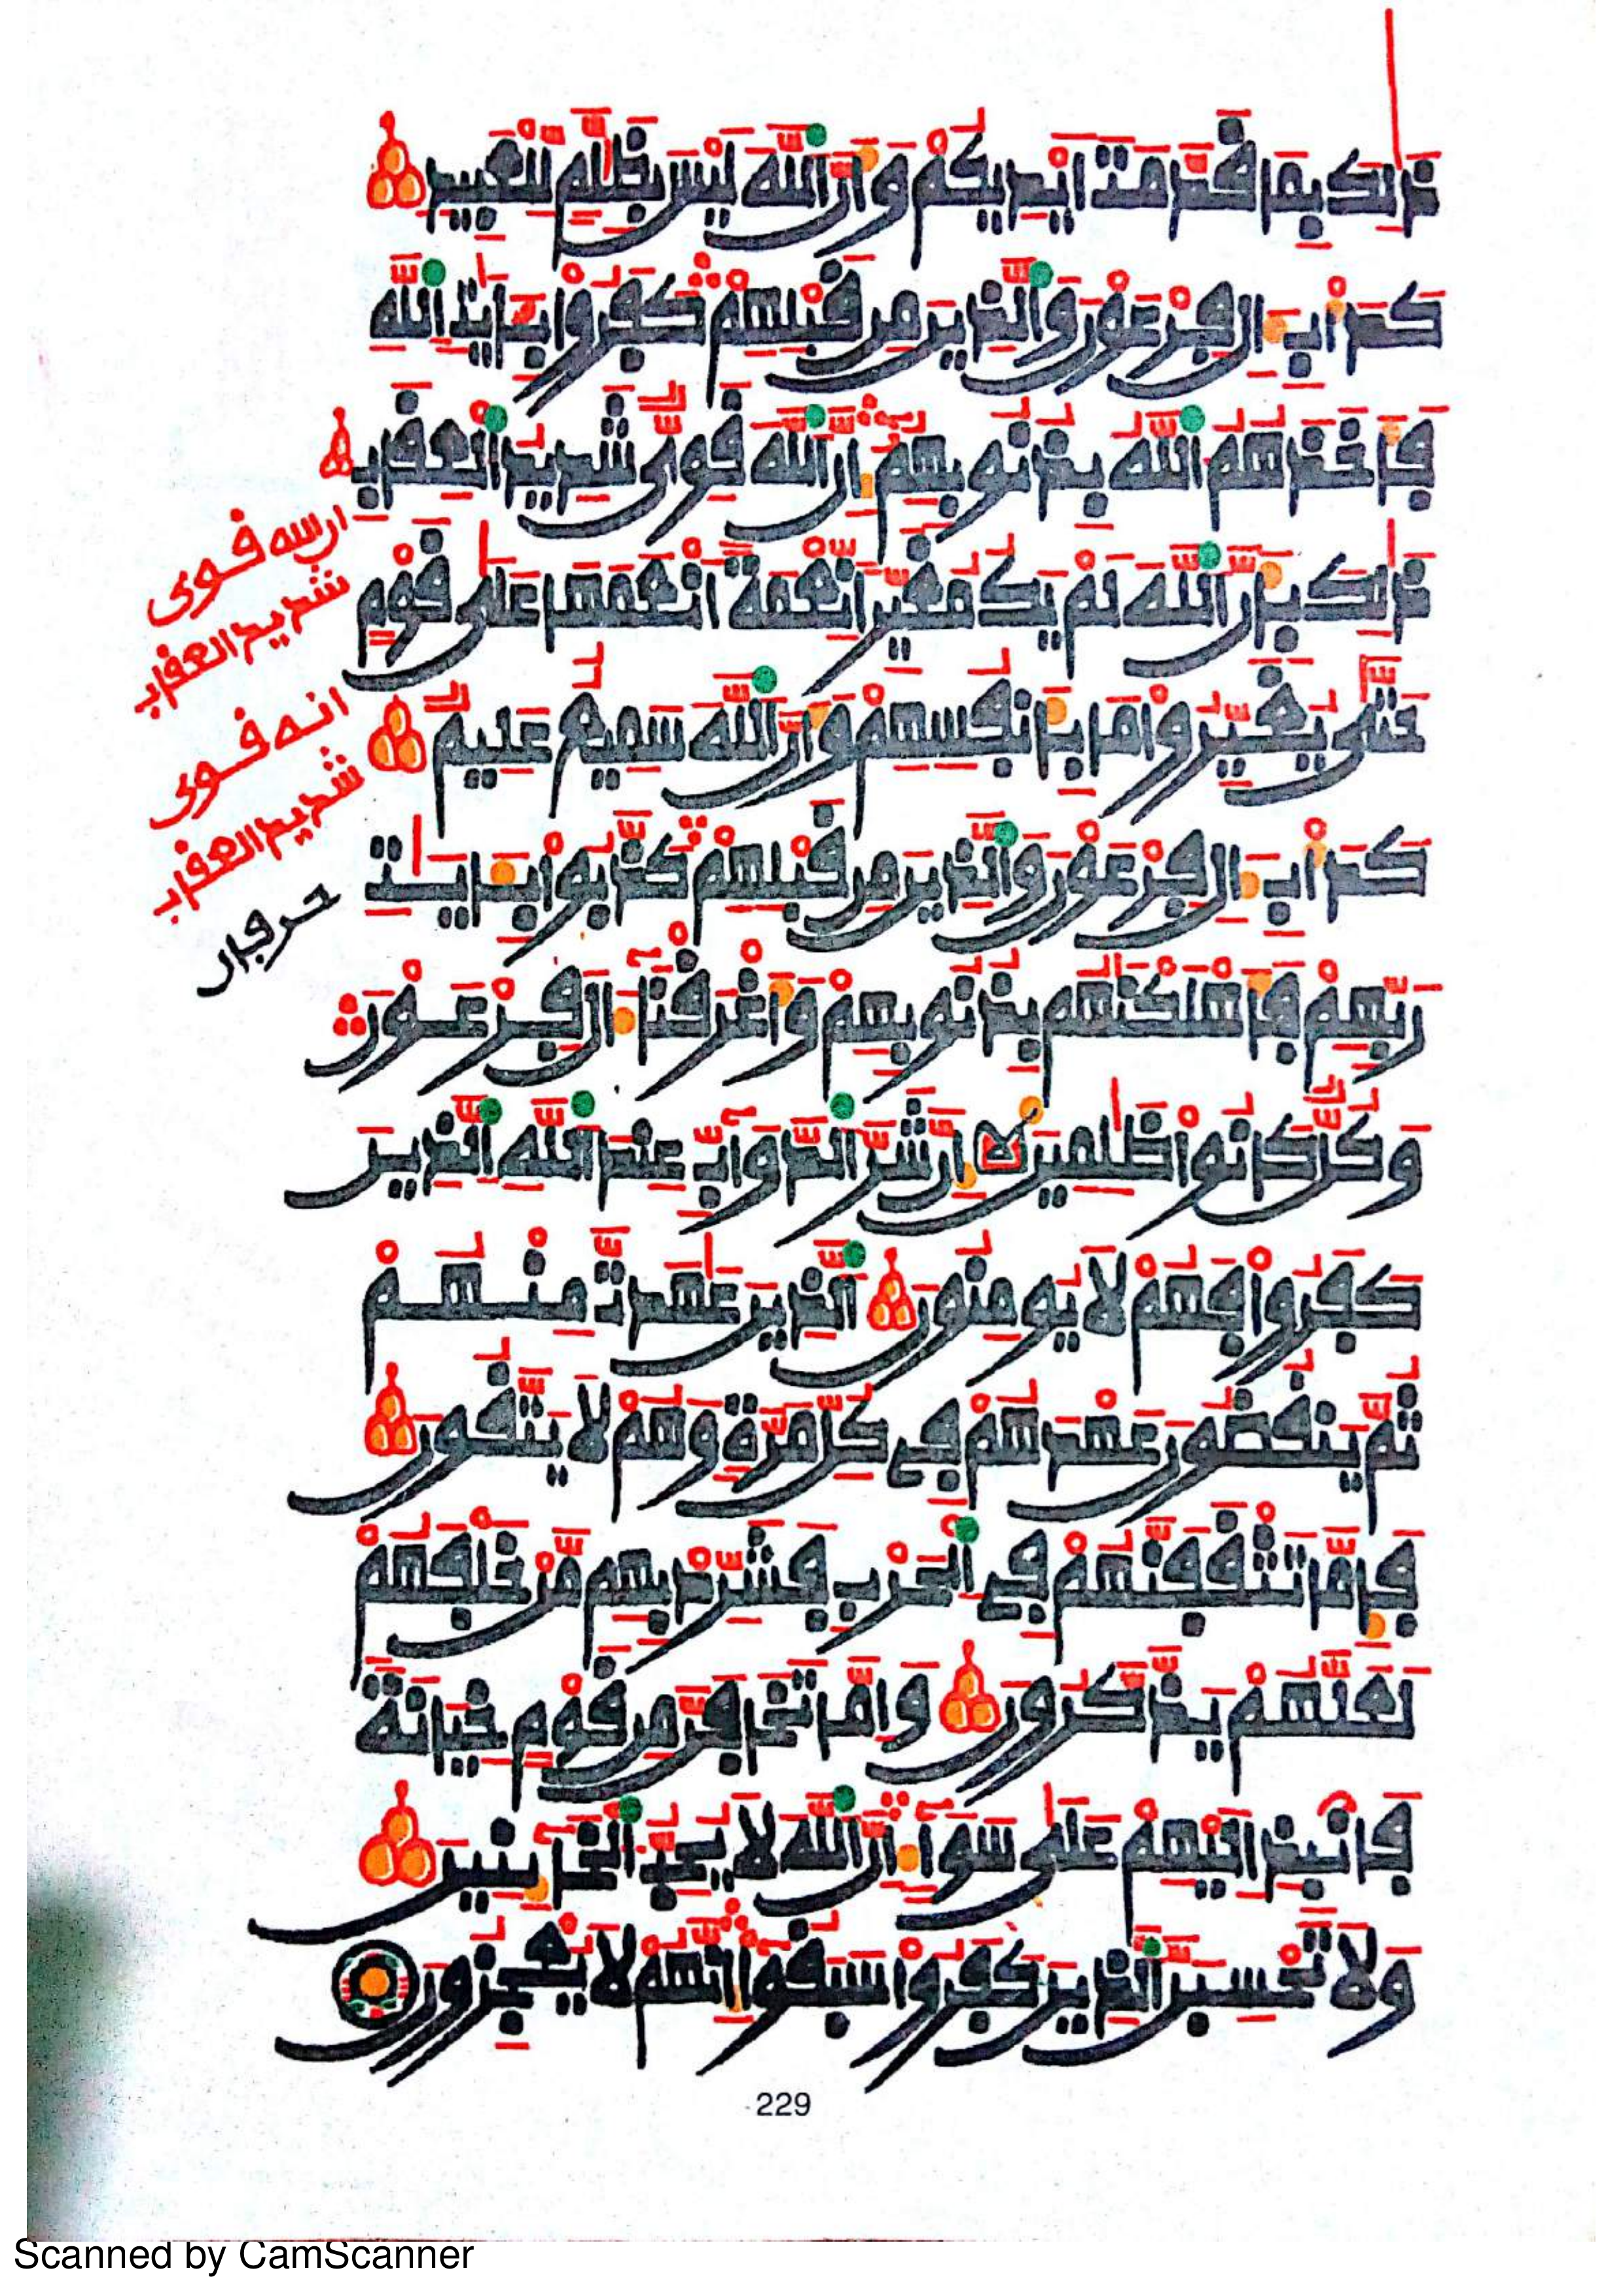 ذَٰلِكَ بِمَا قَدَّمَتْ أَيْدِيكُمْ وَأَنَّ اللَّهَ لَيْسَ بِظَلَّٰمٍ لِّلْعَبِيدِ
كَدَأْبِ ءَالِ فِرْعَوْنَ وَالَّذِينَ مِن قَبْلِهِمْ كَفَرُوا بِـَٔايَٰتِ اللَّهِ
فَأَخَذَهُمُ اللَّهُ بِذُنُوبِهِمْ إِنَّ اللَّهَ قَوِيٌّ شَدِيدُ الْعِقَابِ
ذَٰلِكَ بِأَنَّ اللَّهَ لَمْ يَكُ مُغَيِّرًا نِّعْمَةً أَنْعَمَهَا عَلَىٰ قَوْمٍ
حَتَّىٰ يُغَيِّرُوا مَا بِأَنفُسِهِمْ وَأَنَّ اللَّهَ سَمِيعٌ عَلِيمٌ
كَدَأْبِ ءَالِ فِرْعَوْنَ وَالَّذِينَ مِن قَبْلِهِمْ كَذَّبُوا بِـَٔايَٰتِ
رَبِّهِمْ فَأَهْلَكْنَٰهُم بِذُنُوبِهِمْ وَأَغْرَقْنَا ءَالَ فِرْعَوْنَ
وَكُلٌّ كَانُوا ظَٰلِمِينَ إِنَّ شَرَّ الدَّوَآبِّ عِندَ اللَّهِ الَّذِينَ
كَفَرُوا فَهُمْ لَا يُومِنُونَ الَّذِينَ عَٰهَدتَّ مِنْهُمْ
ثُمَّ يَنقُضُونَ عَهْدَهُمْ فِي كُلِّ مَرَّةٍ وَهُمْ لَا يَتَّقُونَ
فَإِمَّا تَثْقَفَنَّهُمْ فِي الْحَرْبِ فَشَرِّدْ بِهِم مَّنْ خَلْفَهُمْ
لَعَلَّهُمْ يَذَّكَّرُونَ وَإِمَّا تَخَافَنَّ مِن قَوْمٍ خِيَانَةً
فَانبِذْ إِلَيْهِمْ عَلَىٰ سَوَآءٍ إِنَّ اللَّهَ لَا يُحِبُّ الْخَآئِنِينَ
وَلَا تَحْسِبَنَّ الَّذِينَ كَفَرُوا سَبَقُوا إِنَّهُمْ لَا يُعْجِزُونَ
ان الله قوى
شديد العقاب
انه قوى
شديد العقاب
229
Scanned by CamScanner